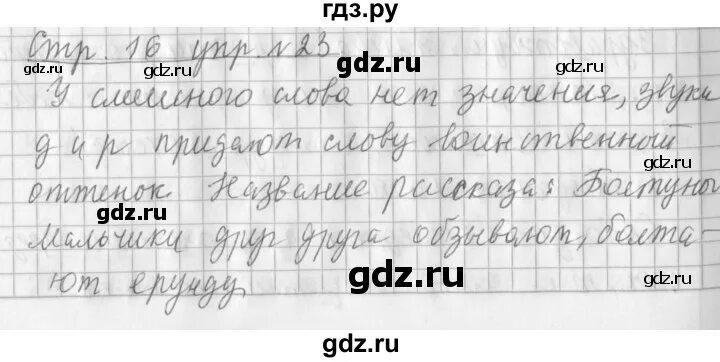 гдз.ру
Стр. 16 упр. №23
gdz.ru gdz.ru gdz.ru
У смешного слова нет значения, звуки
д и р придают слову воинственный
gdz.ru gdz.ru
оттенок Название рассказа: Болтуны
gdz.ru
Мальчики друг друга обзывают, болта-
gdz.ru gdz.ru
ют ерунду
gdz.ru
gdz.ru